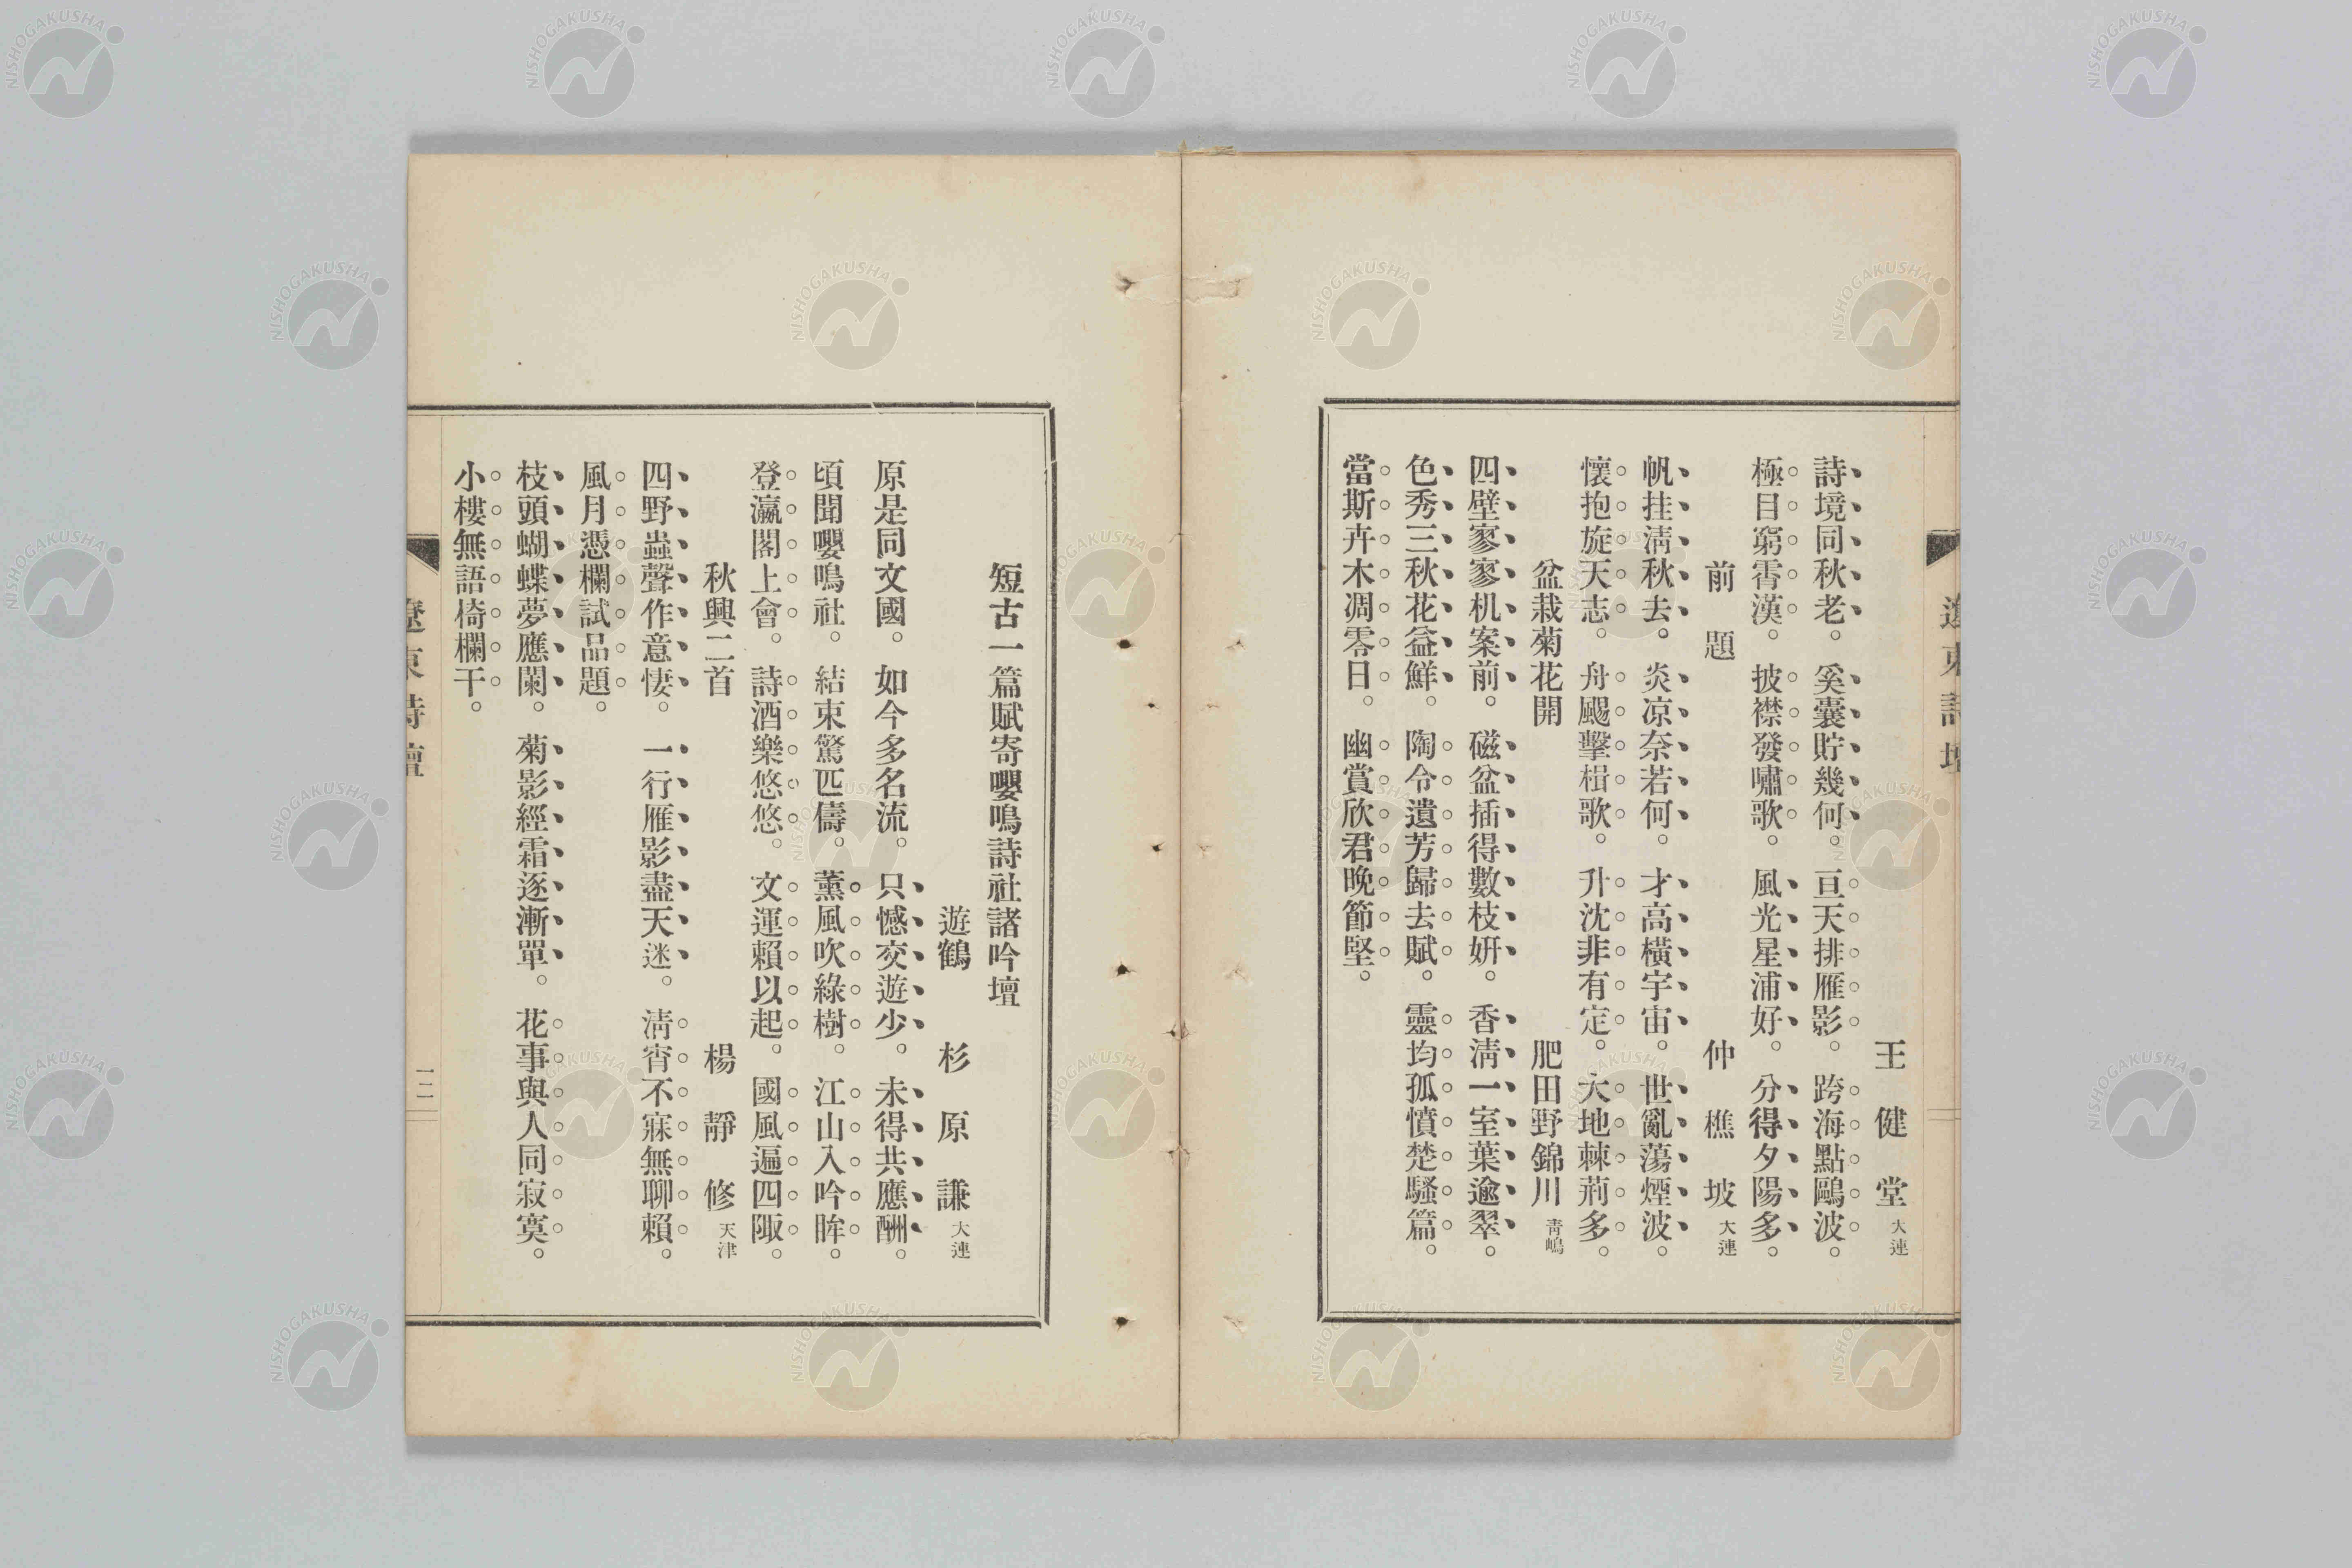 王健堂 大連
詩境同秋老。奚囊貯幾何。亘天排雁影。跨海點鷗波。
極目窮霄漢。披襟發嘯歌。風光星浦好。分得夕陽多。
前題 仲樵坡 大連
帆挂淸秋去。炎凉奈若何。才高橫宇宙。世亂蕩煙波。
懷抱旋天志。舟颺擊楫歌。升沈非有定。大地棘荊多。
盆栽菊花開 肥田野錦川 靑嶋
四壁寥寥机案前。磁盆插得數枝姸。香淸一室葉逾翠。
色秀三秋花益鮮。陶令遺芳歸去賦。靈均孤憤楚騷篇。
當斯卉木凋零日。幽賞欣君晚節堅。
遼東詩壇
短古一篇賦寄嚶鳴詩社諸吟壇
遊鶴 杉原謙 大連
原是同文國。如今多名流。只憾交遊少。未得共應酬。
頃聞嚶鳴社。結束驚匹儔。薰風吹綠樹。江山入吟眸。
登瀛閣上會。詩酒樂悠悠。文運賴以起。國風遍四陬。
秋興二首 楊靜修 天津
四野蟲聲作意悽。一行雁影盡天迷。淸宵不寐無聊賴。
風月憑欄試品題。
枝頭蝴蝶夢應闌。菊影經霜逐漸單。花事與人同寂寞。
小樓無語倚欄干。
遼東詩壇
一二
NISHOGAKUSHA